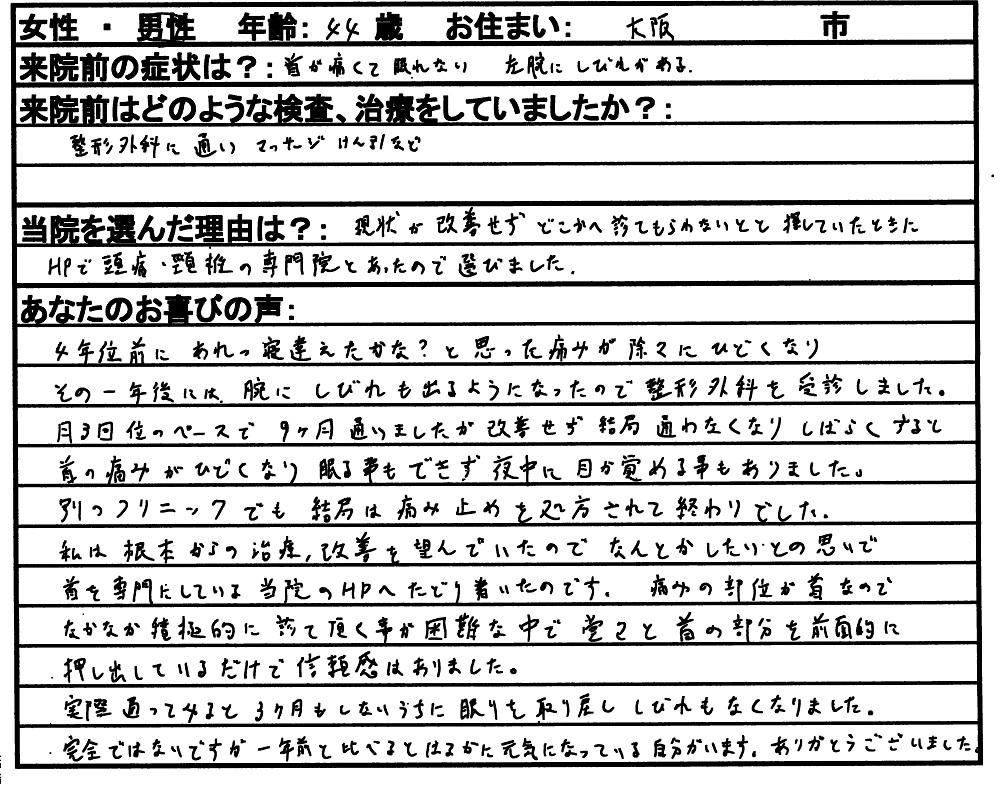 女性 ・ 男性 年齢: 44 歳 お住まい: 大阪 市
来院前の症状は?: 首が痛くて眠れない 左腕にしびれがある.
来院前はどのような検査、治療をしていましたか?:
整形外科に通い マッサージ けん引など
当院を選んだ理由は?: 現状が改善せず どこかへ診てもらわないとと 探していたときに
HPで頭痛・頸椎の専門院とあったので選びました.
あなたのお喜びの声:
4年位前に あれっ寝違えたかな?と思った痛みが除々にひどくなり
その一年後には、腕に しびれも出るようになったので整形外科を受診しました。
月3回位のペースで 9ヶ月通いましたが改善せず 結局通わなくなり しばらくすると
首の痛みがひどくなり 眠る事もできず夜中に目が覚める事もありました。
別のクリニックでも 結局は痛み止めを処方されて終わりでした.
私は根本からの治療,改善を望んでいたので なんとかしたいとの思いで
首を専門にしている当院のHPへたどり着いたのです. 痛みの部位が首なので
なかなか積極的に診て頂く事が困難な中で 堂々と首の部分を前面的に
押し出しているだけで信頼感はありました。
実際通ってみると3ヶ月もしないうちに眠りを取り戻し しびれもなくなりました。
完全ではないですが一年前と比べるとはるかに元気になっている自分がいます。ありがとうございました。